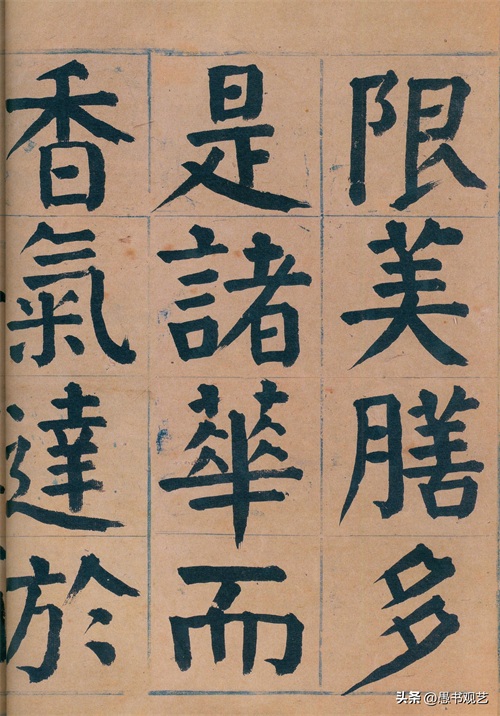 限美膳多
是諸華而
香氣達於
头条 @愚书观艺